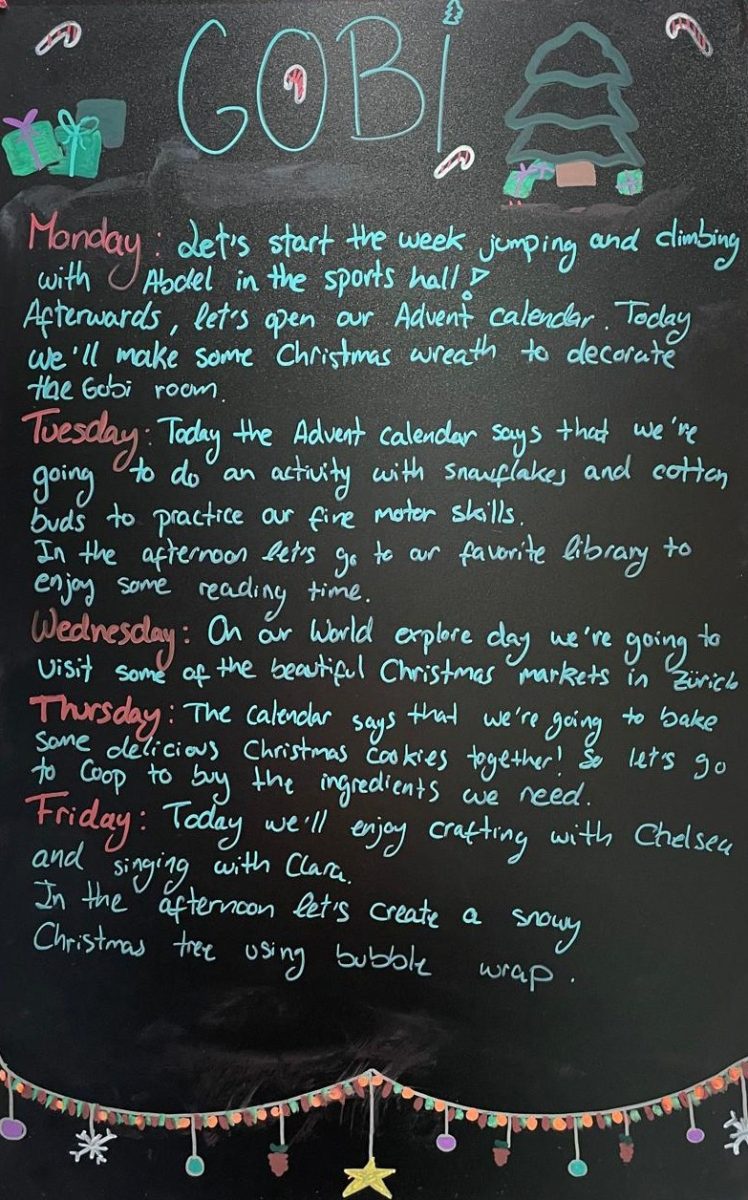 GOBI
Monday: Let's start the week jumping and climbing
with Abdel in the sports hall!
Afterwards, let's open our Advent calendar. Today
we'll make some Christmas wreath to decorate
the Gobi room.
Tuesday: Today the Advent calendar says that we're
going to do an activity with snowflakes and cotton
buds to practice our fine motor skills.
In the afternoon let's go to our favorite library to
enjoy some reading time.
Wednesday: On our World explore day we're going to
visit some of the beautiful Christmas markets in Zürich
Thursday: The calendar says that we're going to bake
some delicious Christmas cookies together! So let's go
to Coop to buy the ingredients we need.
Friday: Today we'll enjoy crafting with Chelsea
and singing with Clara.
In the afternoon let's create a snowy
Christmas tree using bubble wrap.